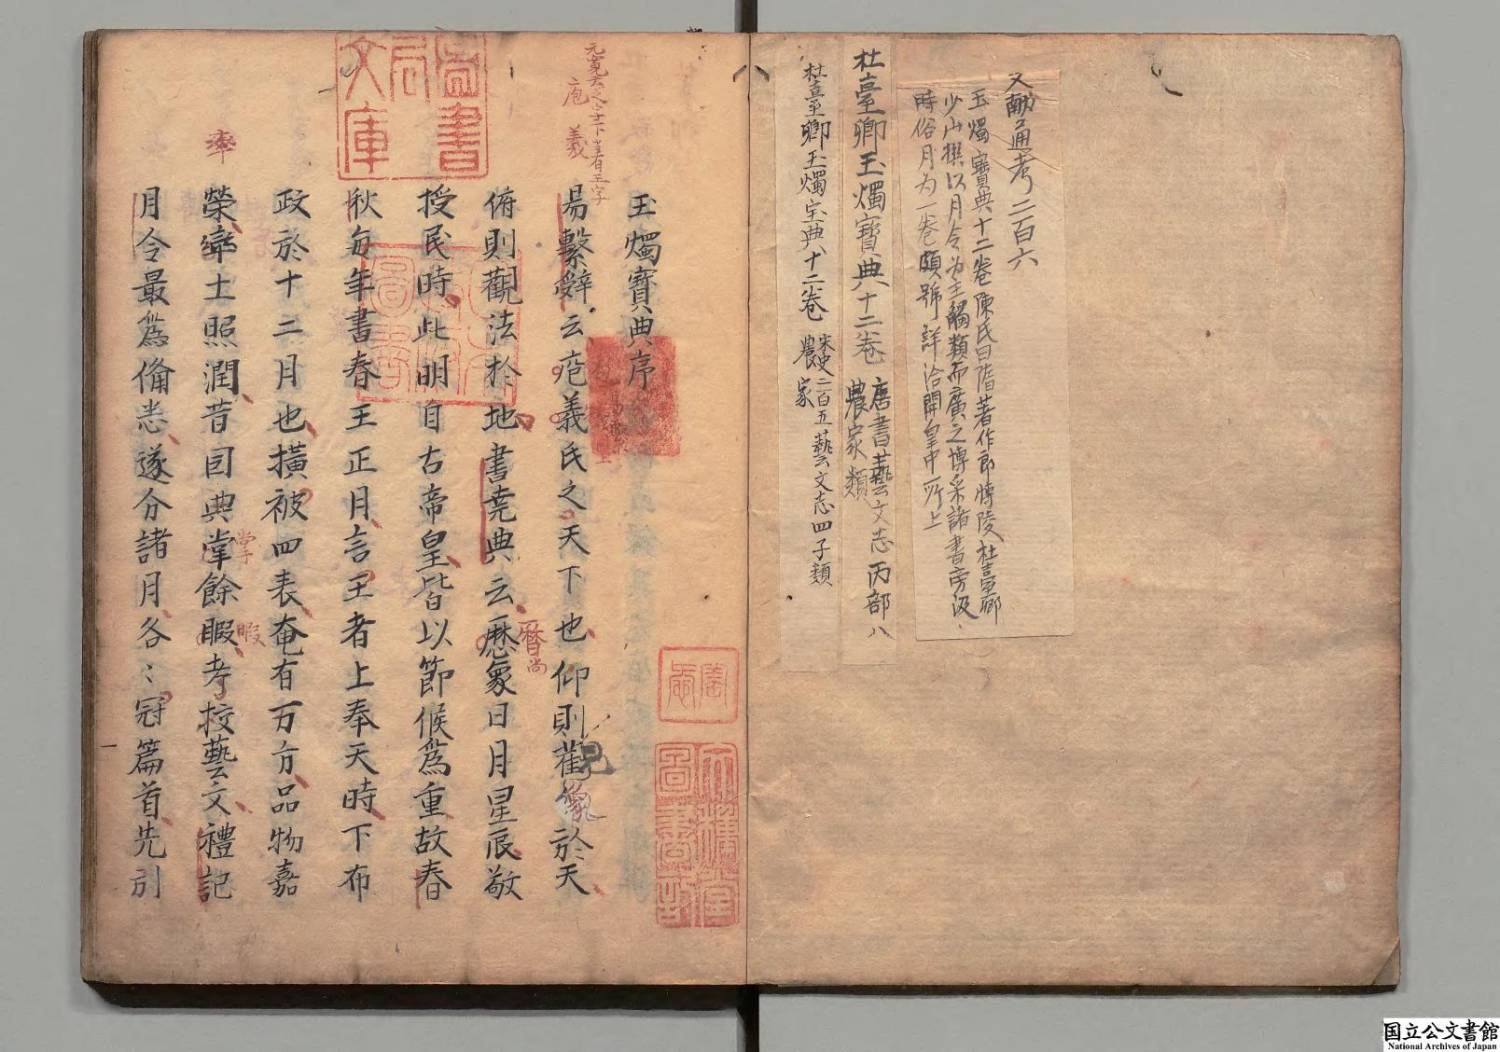 文献通考二百六
玉燭寶典十二卷陳氏曰隋著作郎博陵杜臺卿
少山撰以月令为主觸類而廣之博采諸書旁汲
時俗月为一卷頗號詳洽開皇中所上
杜臺卿玉燭寶典十二卷 唐書藝文志丙部八
農家類
杜臺卿玉燭宝典十二卷 宋史二百五藝文志四子類
農家
玉燭寶典序
易繫辭云庖羲氏之天下也仰則觀象於天
俯則觀法於地書堯典云曆象日月星辰敬
授民時此明自古帝皇皆以節候爲重故春
秋每年書春王正月言王者上奉天時下布
政於十二月也横被四表奄有万方品物嘉
榮率土照潤昔因典掌餘暇考挍藝文禮記
月令最爲俻悉遂分諸月各〻冠篇首先引
庖羲
率
曆
掌
暇
見
象
書局文庫
国立公文書館
National Archives of Japan